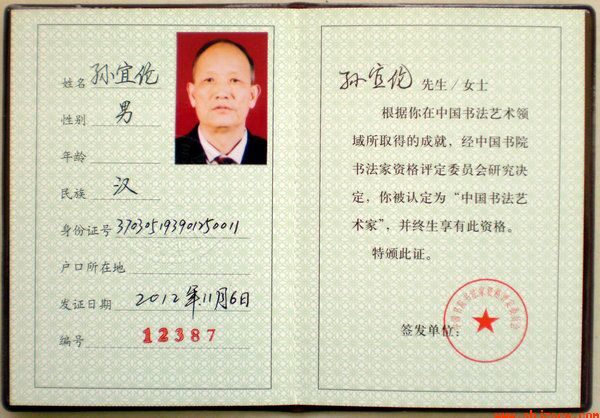 姓名 孙宜伦
性别 男
年龄
民族 汉
身份证号 370305193901250011
户口所在地
发证日期 2012年11月6日
编号 12387
孙宜伦 先生/女士
根据你在中国书法艺术领
域所取得的成就，经中国书院
书法家资格评定委员会研究决
定，你被认定为“中国书法艺
术家”，并终生享有此资格。
特颁此证。
签发单位：
中国书院书法家资格评定委员会